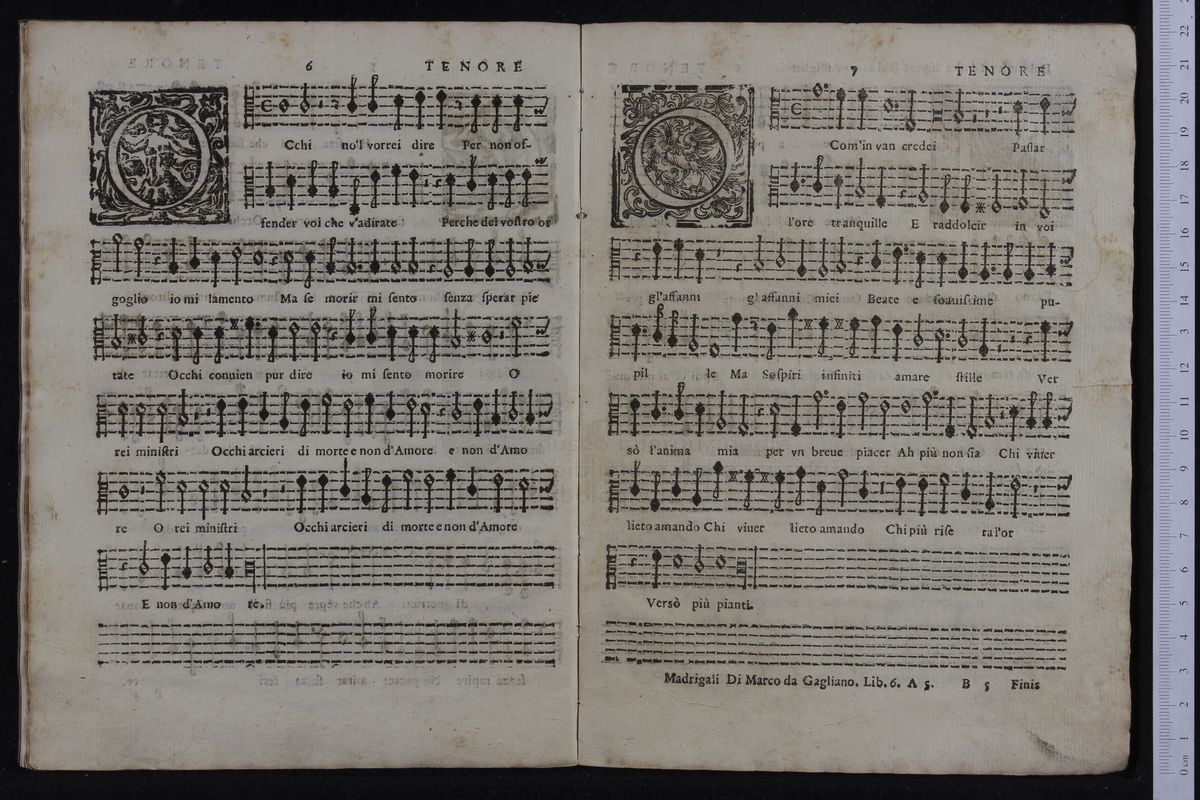 6 TENORE
O
Cchi no'l vorrei dire Per non of-
fender voi che v'adirate Perche del vostro or
goglio io mi lamento Ma se morir mi sento senza sperar pie
tate Occhi conuien pur dire io mi sento morire O
rei ministri Occhi arcieri di morte e non d'Amore e non d'Amo
re O rei ministri Occhi arcieri di morte e non d'Amore
E non d'Amo re.
7 TENORE
O
Com'in van credei Passar
l'ore tranquille E raddolcir in voi
gl'affanni gl'affanni miei Beate e soauissime pu-
pil le Ma Sospiri infiniti amare stille Ver
sò l'anima mia per vn breue piacer Ah più non sia Chi viuer
lieto amando Chi viuer lieto amando Chi più rise tal'or
Versò più pianti.
Madrigali Di Marco da Gagliano. Lib. 6. A 5. B 5 Finis
0 cm 1 2 3 4 5 6 7 8 9 10 11 12 13 14 15 16 17 18 19 20 21 22